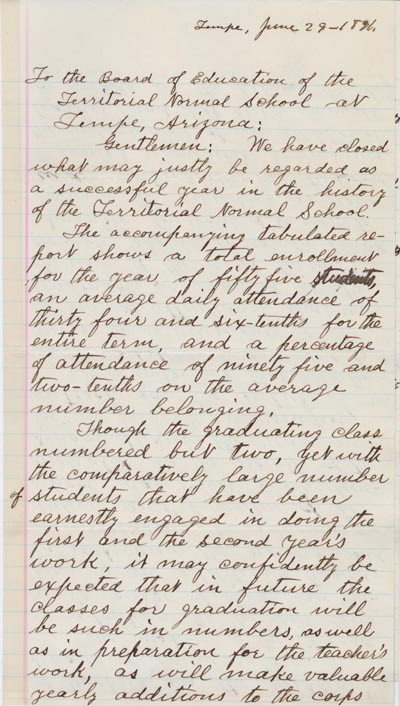 Tempe, June 29-1891.
To the Board of Education of the
Territorial Normal School at
Tempe, Arizona:
Gentlemen: We have closed
what may justly be regarded as
a successful year in the history
of the Territorial Normal School.
The accompanying tabulated re-
port shows a total enrollment
for the year of fifty five students,
an average daily attendance of
thirty four and six-tenths for the
entire term, and a percentage
of attendance of ninety five and
two-tenths on the average
number belonging.
Though the graduating class
numbered but two, yet with
the comparatively large number
of students that have been
earnestly engaged in doing the
first and the second year's
work, it may confidently be
expected that in future the
classes for graduation will
be such in numbers, as well
as in preparation for the teacher's
work, as will make valuable
yearly additions to the corps